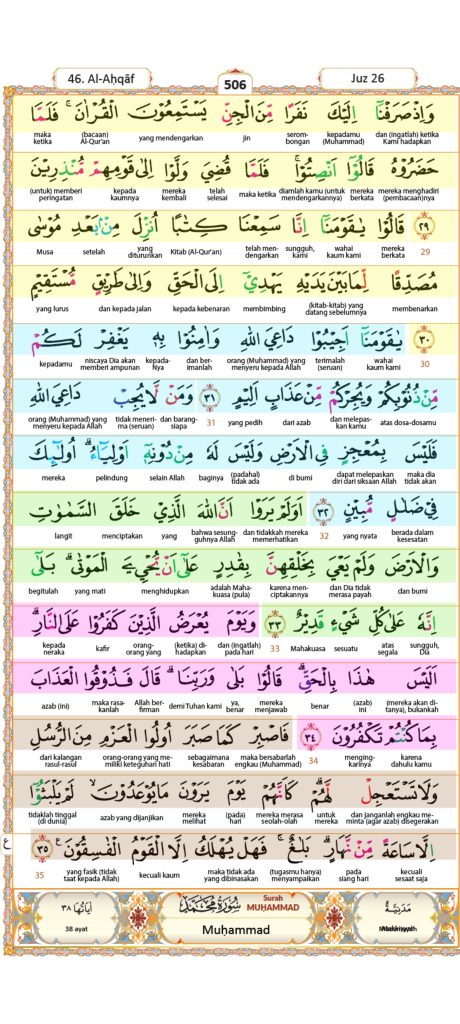 46. Al-Aḥqāf
506
Juz 26
وَاِذْ صَرَفْنَآ اِلَيْكَ نَفَرًا مِّنَ الْجِنِّ يَسْتَمِعُوْنَ الْقُرْاٰنَۚ فَلَمَّا
dan (ingatlah) ketika Kami hadapkan kepadamu (Muhammad) serom-bongan jin yang mendengarkan (bacaan) Al-Qur'an maka ketika
حَضَرُوْهُ قَالُوْٓا اَنْصِتُوْاۚ فَلَمَّا قُضِيَ وَلَّوْا اِلٰى قَوْمِهِمْ مُّنْذِرِيْنَ
mereka menghadiri (pembacaan)nya mereka berkata diamlah kamu (untuk mendengarkannya) maka ketika telah selesai mereka kembali kepada kaumnya (untuk) memberi peringatan
٢٩ قَالُوْا يٰقَوْمَنَآ اِنَّا سَمِعْنَا كِتٰبًا اُنْزِلَ مِنْۢ بَعْدِ مُوْسٰى
29 mereka berkata wahai kaum kami sungguh, kami telah men-dengarkan Kitab (Al-Qur'an) yang diturunkan setelah Musa
مُصَدِّقًا لِّمَا بَيْنَ يَدَيْهِ يَهْدِيْٓ اِلَى الْحَقِّ وَاِلٰى طَرِيْقٍ مُّسْتَقِيْمٍ
membenarkan (kitab-kitab) yang datang sebelumnya membimbing kepada kebenaran dan kepada jalan yang lurus
٣٠ يٰقَوْمَنَآ اَجِيْبُوْا دَاعِيَ اللّٰهِ وَاٰمِنُوْا بِهٖ يَغْفِرْ لَكُمْ
30 wahai kaum kami terimalah (seruan) orang (Muhammad) yang menyeru kepada Allah dan ber-imanlah kepada-Nya niscaya Dia akan memberi ampunan kepadamu
مِّنْ ذُنُوْبِكُمْ وَيُجِرْكُمْ مِّنْ عَذَابٍ اَلِيْمٍ ٣١ وَمَنْ لَّا يُجِبْ دَاعِيَ اللّٰهِ
atas dosa-dosamu dan melepas-kan kamu dari azab yang pedih 31 dan barang-siapa tidak meneri-ma (seruan) orang (Muhammad) yang menyeru kepada Allah
فَلَيْسَ بِمُعْجِزٍ فِى الْاَرْضِ وَلَيْسَ لَهٗ مِنْ دُوْنِهٖٓ اَوْلِيَاۤءُۗ اُولٰۤىِٕكَ
maka dia tidak akan dapat melepaskan diri dari siksaan Allah di bumi (padahal) tidak ada baginya selain Allah pelindung mereka
فِيْ ضَلٰلٍ مُّبِيْنٍ ٣٢ اَوَلَمْ يَرَوْا اَنَّ اللّٰهَ الَّذِيْ خَلَقَ السَّمٰوٰتِ
berada dalam kesesatan yang nyata 32 dan tidakkah mereka memerhatikan bahwa sesung-guhnya Allah yang menciptakan langit
وَالْاَرْضَ وَلَمْ يَعْيَ بِخَلْقِهِنَّ بِقٰدِرٍ عَلٰٓى اَنْ يُّحْيِ َۧ الْمَوْتٰىۗ بَلٰٓى
dan bumi dan Dia tidak merasa payah karena men-ciptakannya adalah Maha-kuasa (pula) menghidupkan yang mati begitulah
اِنَّهٗ عَلٰى كُلِّ شَيْءٍ قَدِيْرٌ ٣٣ وَيَوْمَ يُعْرَضُ الَّذِيْنَ كَفَرُوْا عَلَى النَّارِۗ
sungguh, Dia atas segala sesuatu Mahakuasa 33 dan (ingatlah) pada hari (ketika) di-hadapkan orang-orang yang kafir kepada neraka
اَلَيْسَ هٰذَا بِالْحَقِّۗ قَالُوْا بَلٰى وَرَبِّنَاۗ قَالَ فَذُوْقُوا الْعَذَابَ
(mereka akan di-tanya), bukankah (azab) ini benar mereka menjawab ya, benar demi Tuhan kami Allah ber-firman maka rasa-kanlah azab (ini)
بِمَا كُنْتُمْ تَكْفُرُوْنَ ٣٤ فَاصْبِرْ كَمَا صَبَرَ اُولُوا الْعَزْمِ مِنَ الرُّسُلِ
karena dahulu kamu menging-karinya 34 maka bersabarlah engkau (Muhammad) sebagaimana kesabaran orang-orang yang me-miliki keteguhan hati dari kalangan rasul-rasul
وَلَا تَسْتَعْجِلْ لَّهُمْۗ كَاَنَّهُمْ يَوْمَ يَرَوْنَ مَا يُوْعَدُوْنَۙ لَمْ يَلْبَثُوْٓا
dan janganlah engkau me-minta (agar azab) disegerakan untuk mereka mereka merasa seolah-olah (pada) hari mereka melihat azab yang dijanjikan tidaklah tinggal (di dunia)
اِلَّا سَاعَةً مِّنْ نَّهَارٍۗ بَلٰغٌۚ فَهَلْ يُهْلَكُ اِلَّا الْقَوْمُ الْفٰسِقُوْنَ ٣٥
kecuali sesaat saja pada siang hari (tugasmu hanya) menyampaikan maka tidak ada yang dibinasakan kecuali kaum yang fasik (tidak taat kepada Allah) 35
ع
مَدَنِيَّةٌ
سُوْرَةُ مُحَمَّدٍ
Surah MUḤAMMAD
اٰيَاتُهَا ٣٨
38 ayat
Muḥammad